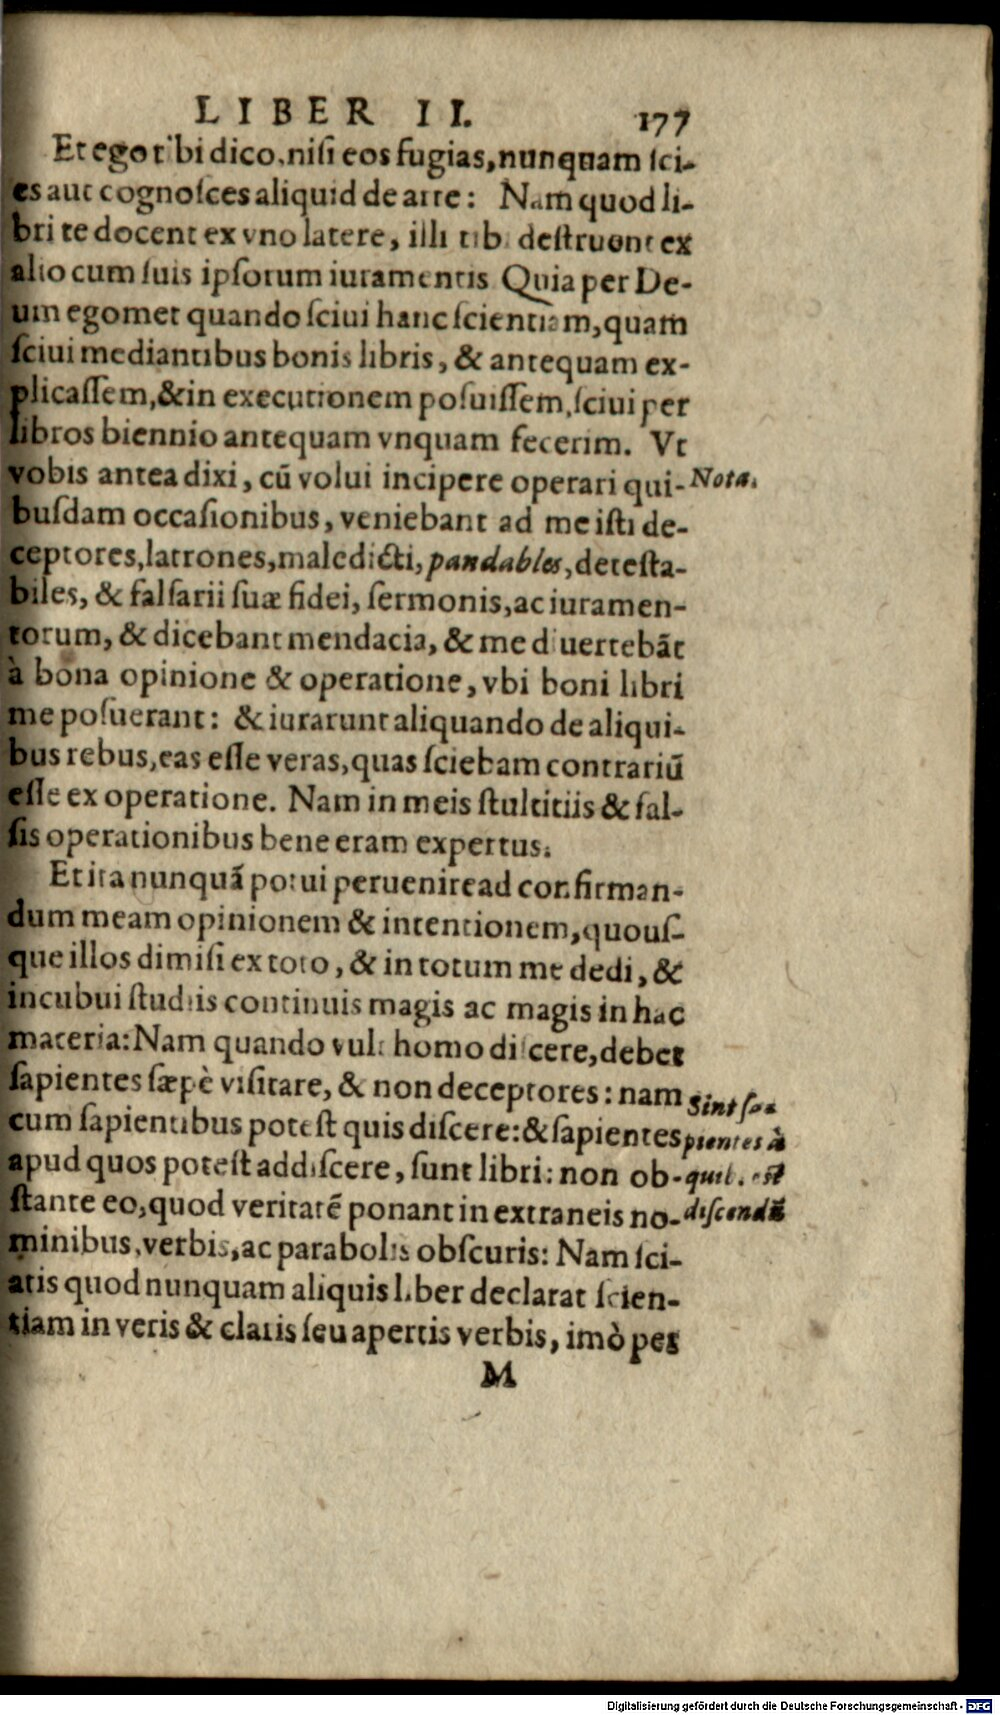 LIBER II. 177
Et ego tibi dico, nisi eos fugias, nunquam sci-
es aut cognosces aliquid de arte: Nam quod li-
bri te docent ex vno latere, illi tibi destruont ex
alio cum suis ipsorum iuramentis Quia per De-
um egomet quando sciui hanc scientiam, quam
sciui mediantibus bonis libris, & antequam ex-
plicassem, & in executionem posuissem, sciui per
libros biennio antequam vnquam fecerim. Vt
vobis antea dixi, cū volui incipere operari qui- Nota.
busdam occasionibus, veniebant ad me isti de-
ceptores, latrones, maledicti, pandables, detesta-
biles, & falsarii suæ fidei, sermonis, ac iuramen-
torum, & dicebant mendacia, & me diuertebāt
à bona opinione & operatione, vbi boni libri
me posuerant: & iurarunt aliquando de aliqui-
bus rebus, eas esse veras, quas sciebam contrariū
esse ex operatione. Nam in meis stultitiis & fal-
sis operationibus bene eram expertus.
Et ita nunquā potui peruenire ad confirman-
dum meam opinionem & intentionem, quous-
que illos dimisi ex toto, & in totum me dedi, &
incubui studiis continuis magis ac magis in hac
materia: Nam quando vult homo discere, debet
sapientes sæpè visitare, & non deceptores: nam Sint sa-
cum sapientibus potest quis discere: & sapientes pientes à
apud quos potest addiscere, sunt libri: non ob- quib. est
stante eo, quod veritatē ponant in extraneis no- discendū
minibus, verbis, ac parabolis obscuris: Nam sci-
atis quod nunquam aliquis liber declarat scien-
tiam in veris & claris seu apertis verbis, imò per
M
Digitalisierung gefördert durch die Deutsche Forschungsgemeinschaft - DFG